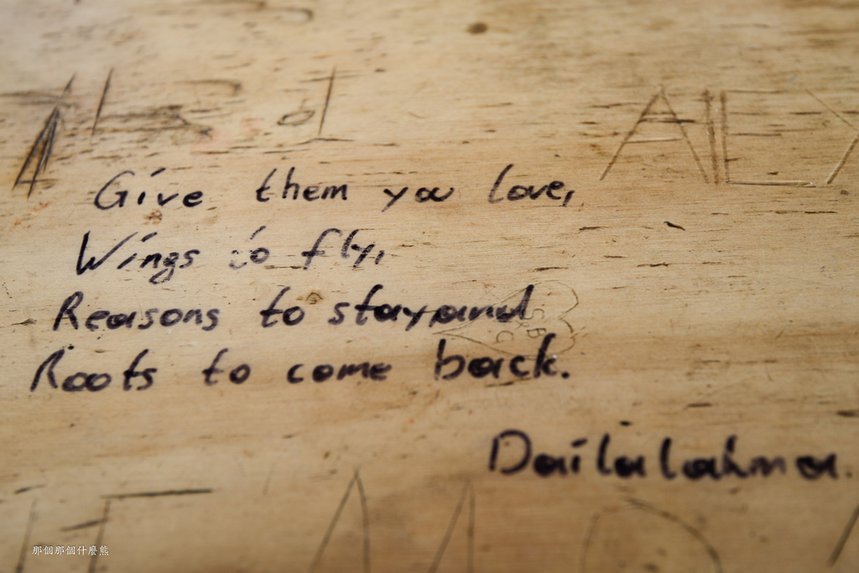 ALEX
Give them you love,
Wings to fly,
Reasons to stay, and
Roots to come back.
Dailalahma.
那個那個什麼熊